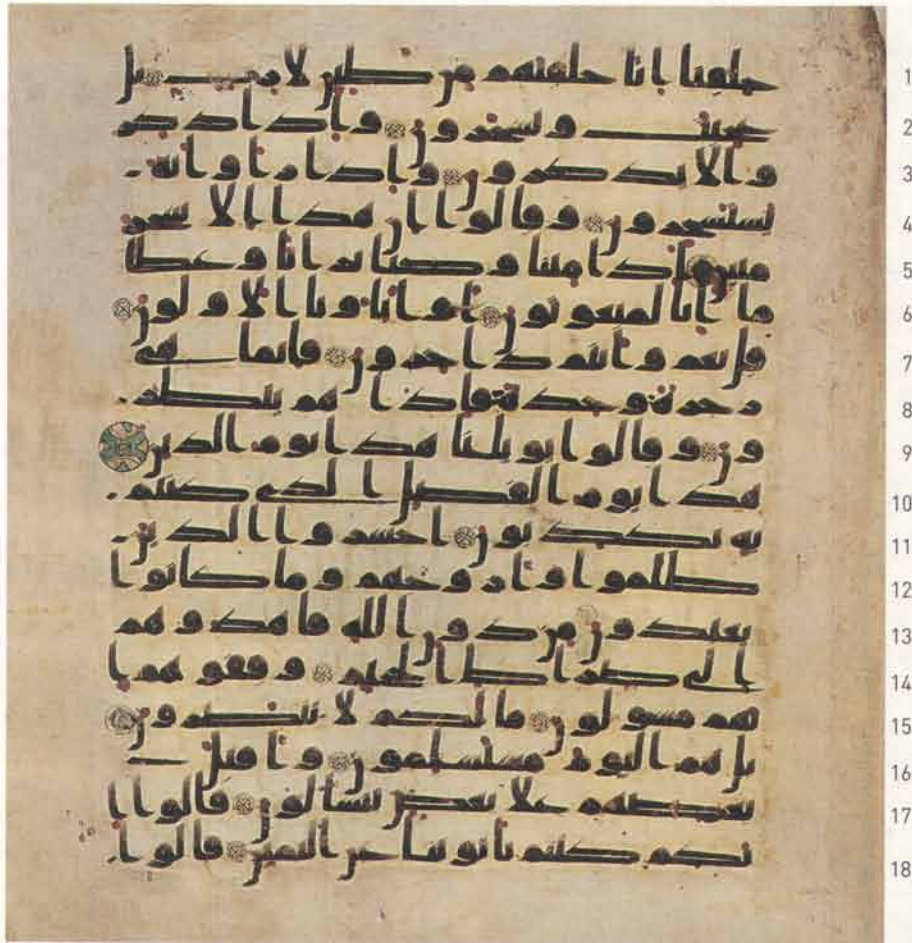 خلقنا انا خلقنهم من طين لازب بل 1
عجبت ويسخرون واذا ذكر 2
وا لا يذكرون واذا راوا ايه 3
يستسخرون وقالوا ان هذا الا سحر 4
مبين اذا متنا وكنا ترابا وعظا 5
ما انا لمبعوثون او اباونا الاولون 6
قل نعم وانتم دخرون فانما هي 7
زجرة وحدة فاذا هم ينظر 8
ون وقالوا يويلنا هذا يوم الدين 9
هذا يوم الفصل الذي كنتم 10
به تكذبون احشروا الذين 11
ظلموا وازوجهم وما كانوا 12
يعبدون من دون الله فاهدوهم 13
الى صراط الجحيم وقفوهم ا 14
نهم مسولون ما لكم لا تنصرون 15
بل هم اليوم مستسلمون واقبل 16
بعضهم علا بعض يتسالون قالوا ا 17
نكم كنتم تاتوننا عن اليمين قالوا 18